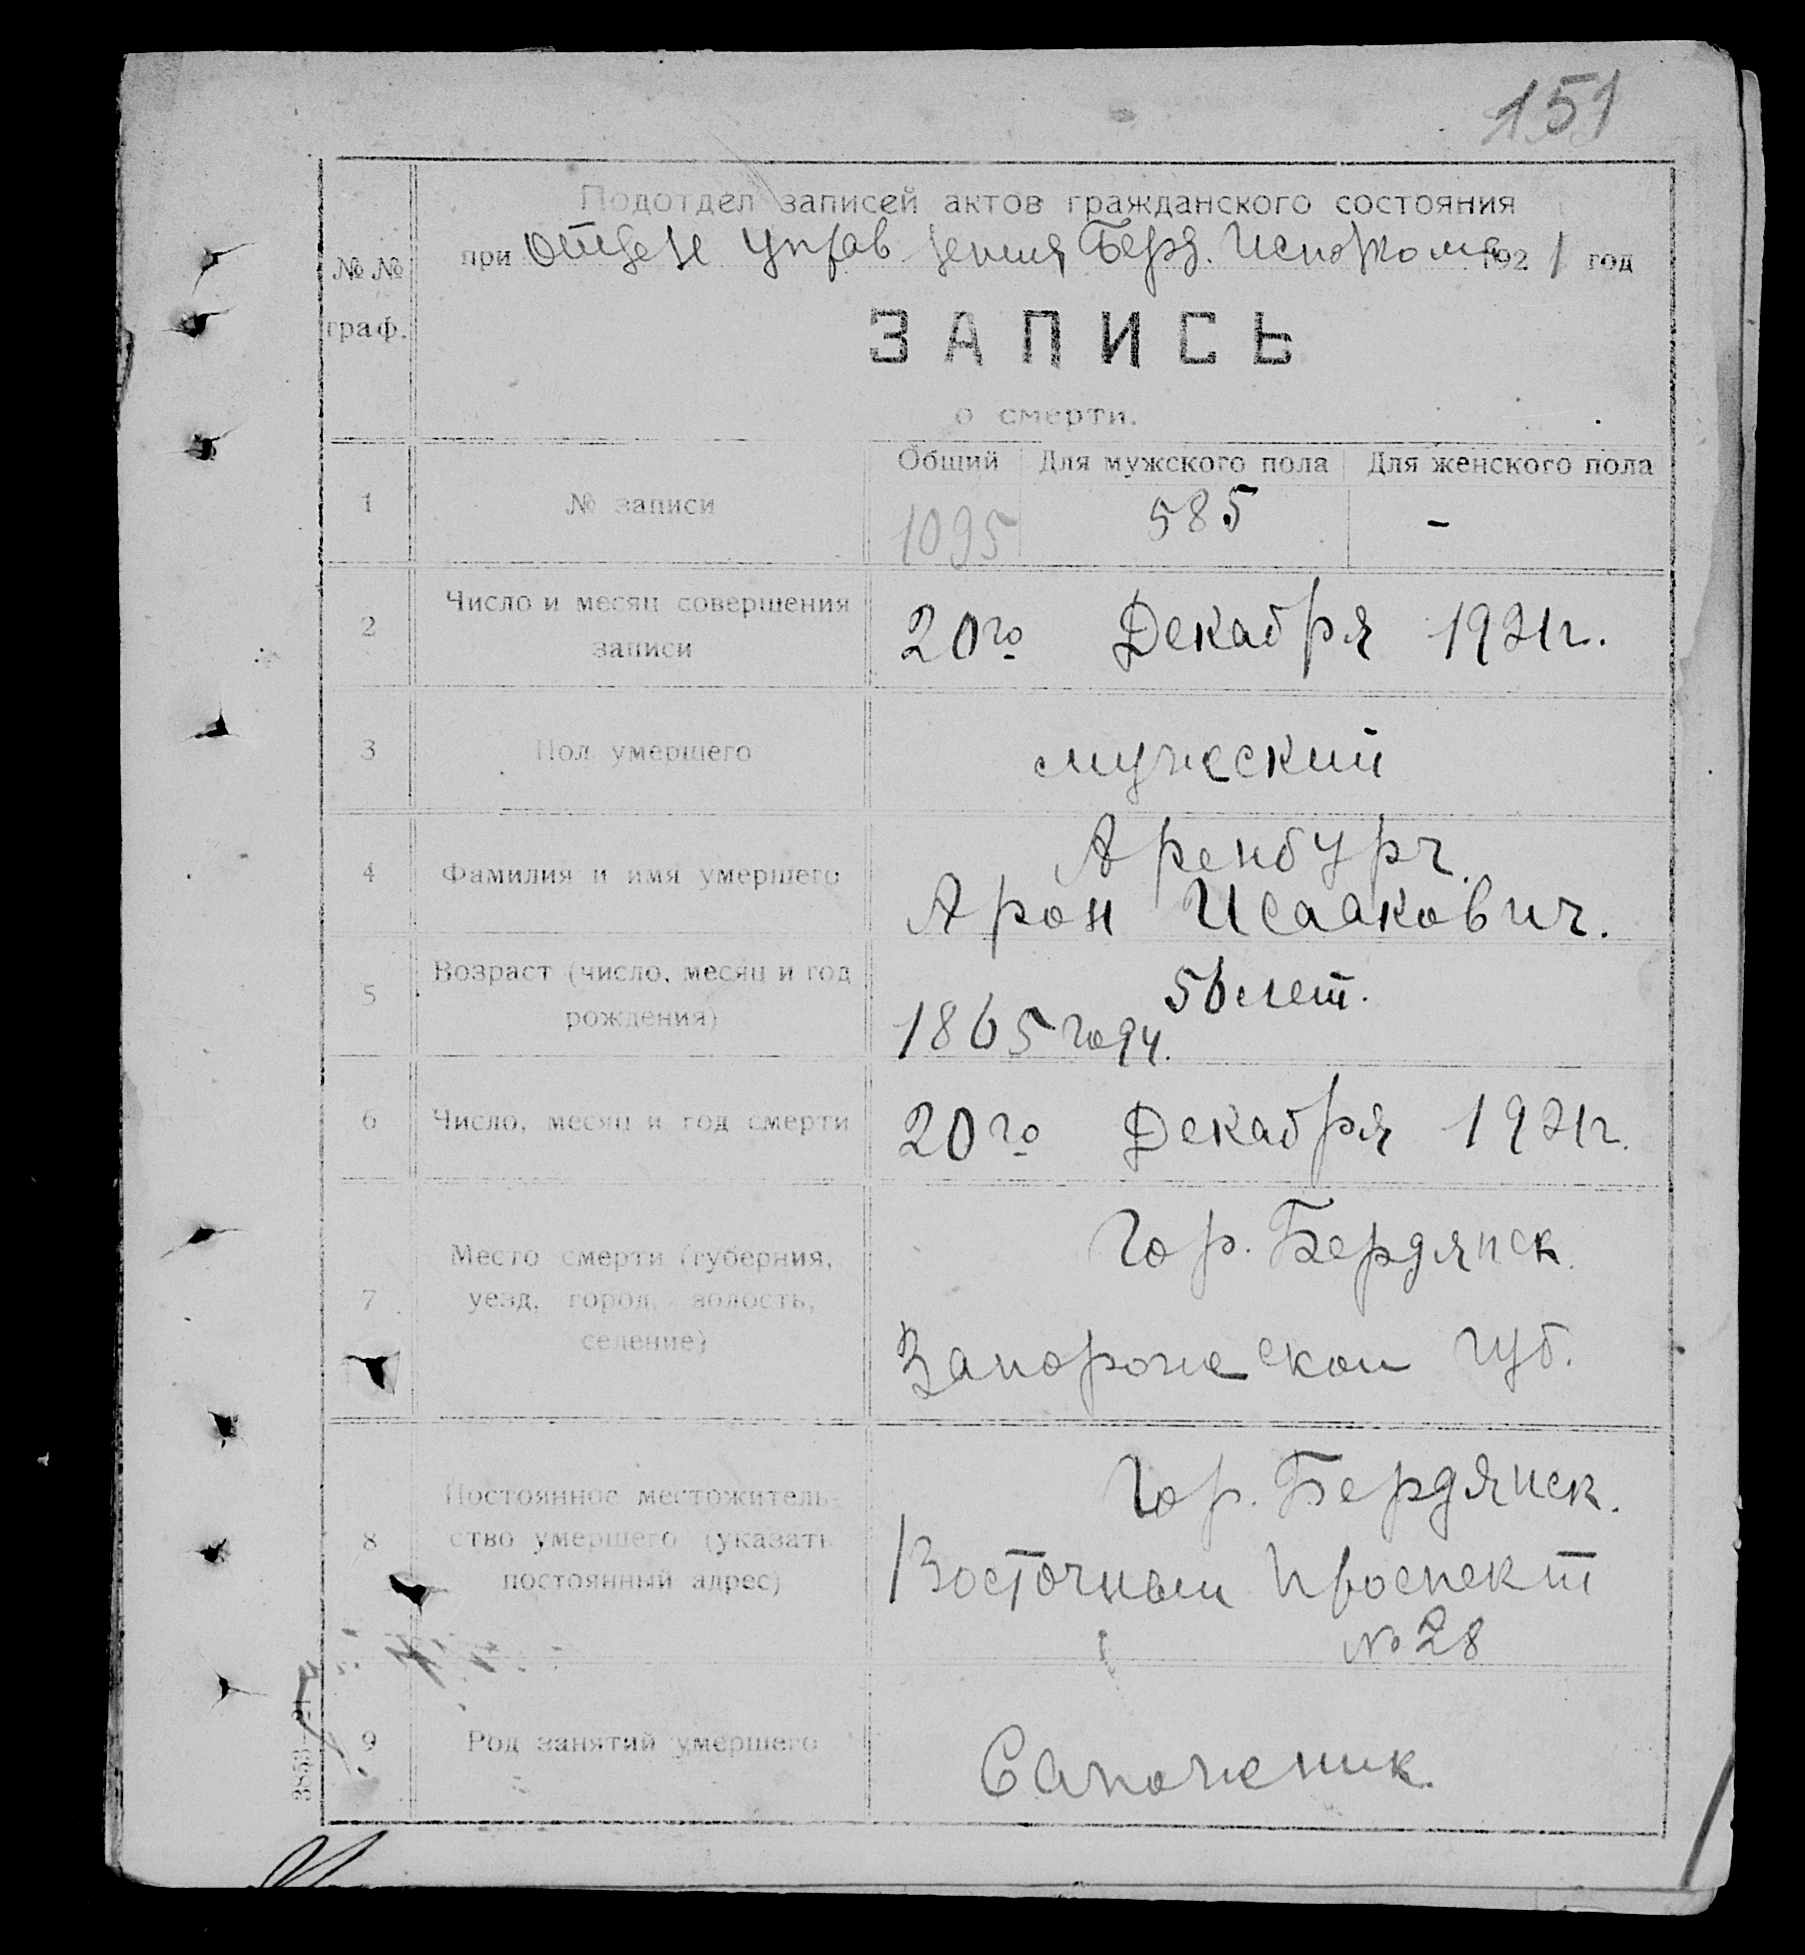 151
Подотдел записей актов гражданского состояния
при Отделе Управления Берд. Исполкома 1921 год
№№ граф.
ЗАПИСЬ
о смерти.
Общий Для мужского пола Для женского пола
1 № записи 1095 585 -
2 Число и месяц совершения
записи
20го Декабря 1921г.
3 Пол умершего мужеский
4 Фамилия и имя умершего
Аренбург.
Арон Исаакович.
5 Возраст (число, месяц и год
рождения)
56 лет.
1865 году.
6 Число, месяц и год смерти 20го Декабря 1921г.
7 Место смерти (губерния,
уезд, город, волость,
селение)
Гор. Бердянск.
Запорожской губ.
8 Постоянное местожитель-
ство умершего (указать
постоянный адрес)
Гор. Бердянск.
Восточный Проспект
№ 28
9 Род занятий умершего Сапожник.